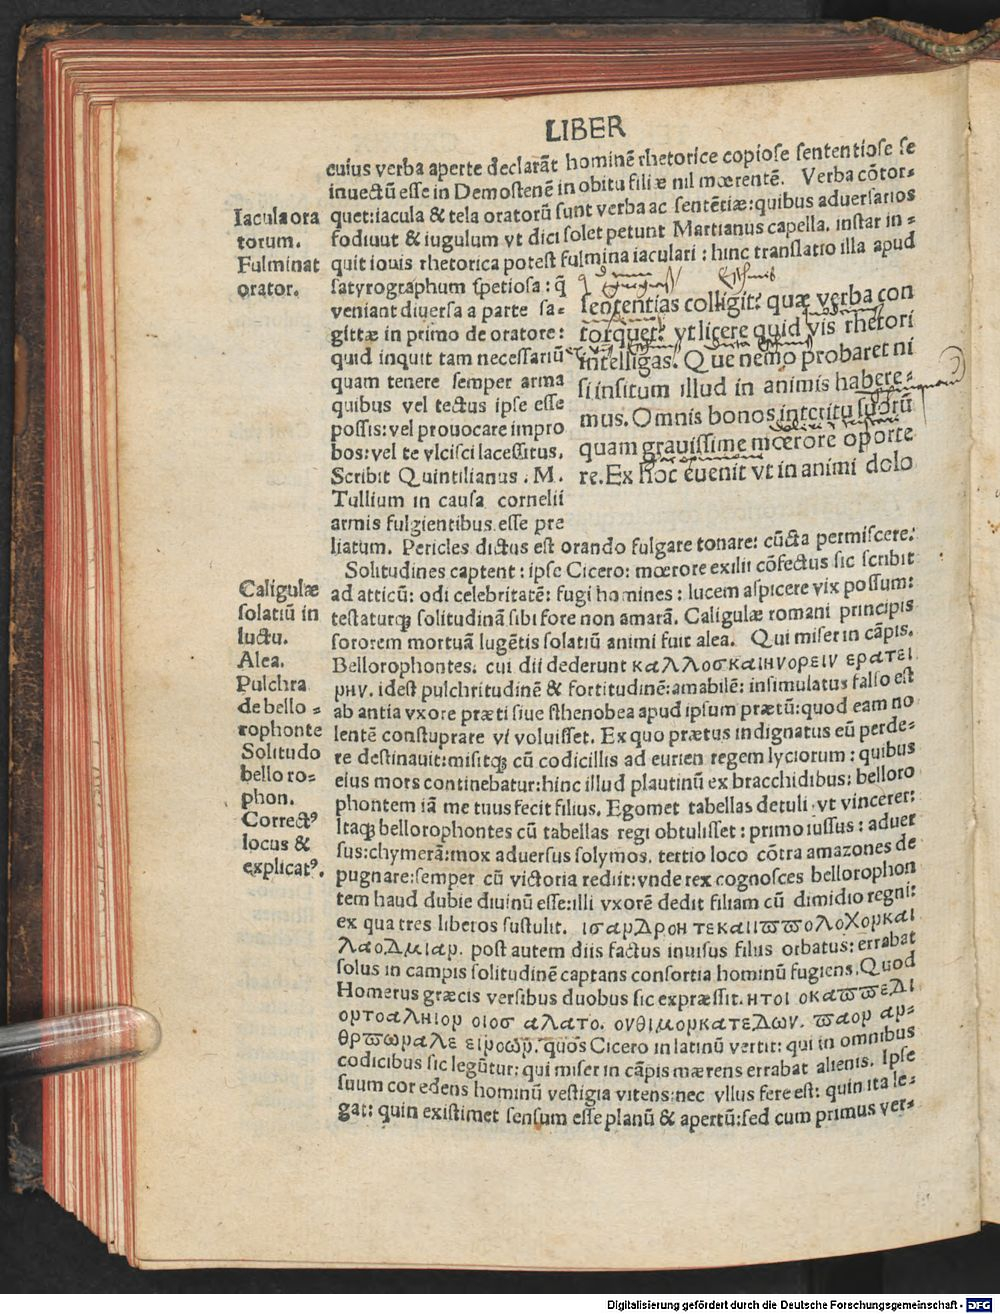 LIBER
cuius verba aperte declarāt hominē rhetorice copiose sententiose se
inuectū esse in Demostenē in obitu filiæ nil mœrentē. Verba cōtor⸗
quet:iacula & tela oratorū sunt verba ac sentētiæ:quibus aduersarios
fodiuut & iugulum vt dici solet petunt Martianus capella. instar in⸗
quit iouis rhetorica potest fulmina iaculari : hinc translatio illa apud
Iacula ora
torum.
Fulminat
orator.
satyrographum spetiosa : q̄
veniant diuersa a parte sa⸗
gittæ in primo de oratore:
quid inquit tam necessariū
quam tenere semper arma
quibus vel tectus ipse esse
possis:vel prouocare impro
bos:vel te vlcisci lacessitus.
Scribit Quintilianus . M.
Tullium in causa cornelii
armis fulgientibus esse pre
sententias colligit? quæ verba con
torquet? vt licere quid vis rhetori
intelligas. Que nemo probaret ni
si insitum illud in animis habere⸗
mus. Omnis bonos interitu suorū
quam grauissime mœrore oporte
re. Ex hoc euenit vt in animi dolo
liatum. Pericles dictus est orando fulgare tonare: cūcta permiscere:
Solitudines captent : ipse Cicero: mœrore exilii cōfectus sic scribit
ad atticū: odi celebritatē: fugi homines : lucem aspicere vix possum:
testaturq; solitudinā sibi fore non amarā. Caligulæ romani principis
sororem mortuā lugētis solatiū animi fuit alea. Qui miser in cāpis.
Bellorophontes. cui dii dederunt καλλοσκαιηνορειν ερατει
ρην. idest pulchritudinē & fortitudinē:amabilē: insimulatus falso est
ab antia vxore præti siue sthenobea apud ipsum prætū:quod eam no
lentē constuprare vi voluisset. Ex quo prætus indignatus eū perde⸗
re destinauit:misitq; cū codicillis ad eurien regem lyciorum : quibus
eius mors continebatur:hinc illud plautinū ex bracchidibus: belloro
phontem iā me tuus fecit filius. Egomet tabellas detuli vt vincerer:
Itaq; bellorophontes cū tabellas regi obtulisset : primo iussus : aduer
sus:chymerā:mox aduersus solymos. tertio loco cōtra amazones de
pugnare:semper cū victoria rediit:vnde rex cognosces bellorophon
tem haud dubie diuinū esse:illi vxorē dedit filiam cū dimidio regni:
ex qua tres liberos sustulit. ισαρΔροη τεκαιιϖϖολοχορκαι
λαοΔμιαρ. post autem diis factus inuisus filiis orbatus: errabat
solus in campis solitudinē captans consortia hominū fugiens. Quod
Homerus græcis versibus duobus sic expræssit. ητοι οκαϖϖεΔι
ορτοαληιορ οιοσ αλατο. ονθιμορκατεΔων. ϖαορ αρ⸗
θρϖωραλε ειροωρ. quos Cicero in latinū vertit: qui in omnibus
codicibus sic legūtur: qui miser in cāpis mærens errabat alienis. Ipse
suum cor edens hominū vestigia vitens:nec vllus fere est: quin ita le⸗
gat: quin existimet sensum esse planū & apertū:sed cum primus ver⸗
Caligulæ
solatiū in
luctu.
Alea.
Pulchra
de bello ⸗
rophonte
Solitudo
bello ro⸗
phon.
Correct⁹
locus &
explicat⁹.
Digitalisierung gefördert durch die Deutsche Forschungsgemeinschaft - DFG